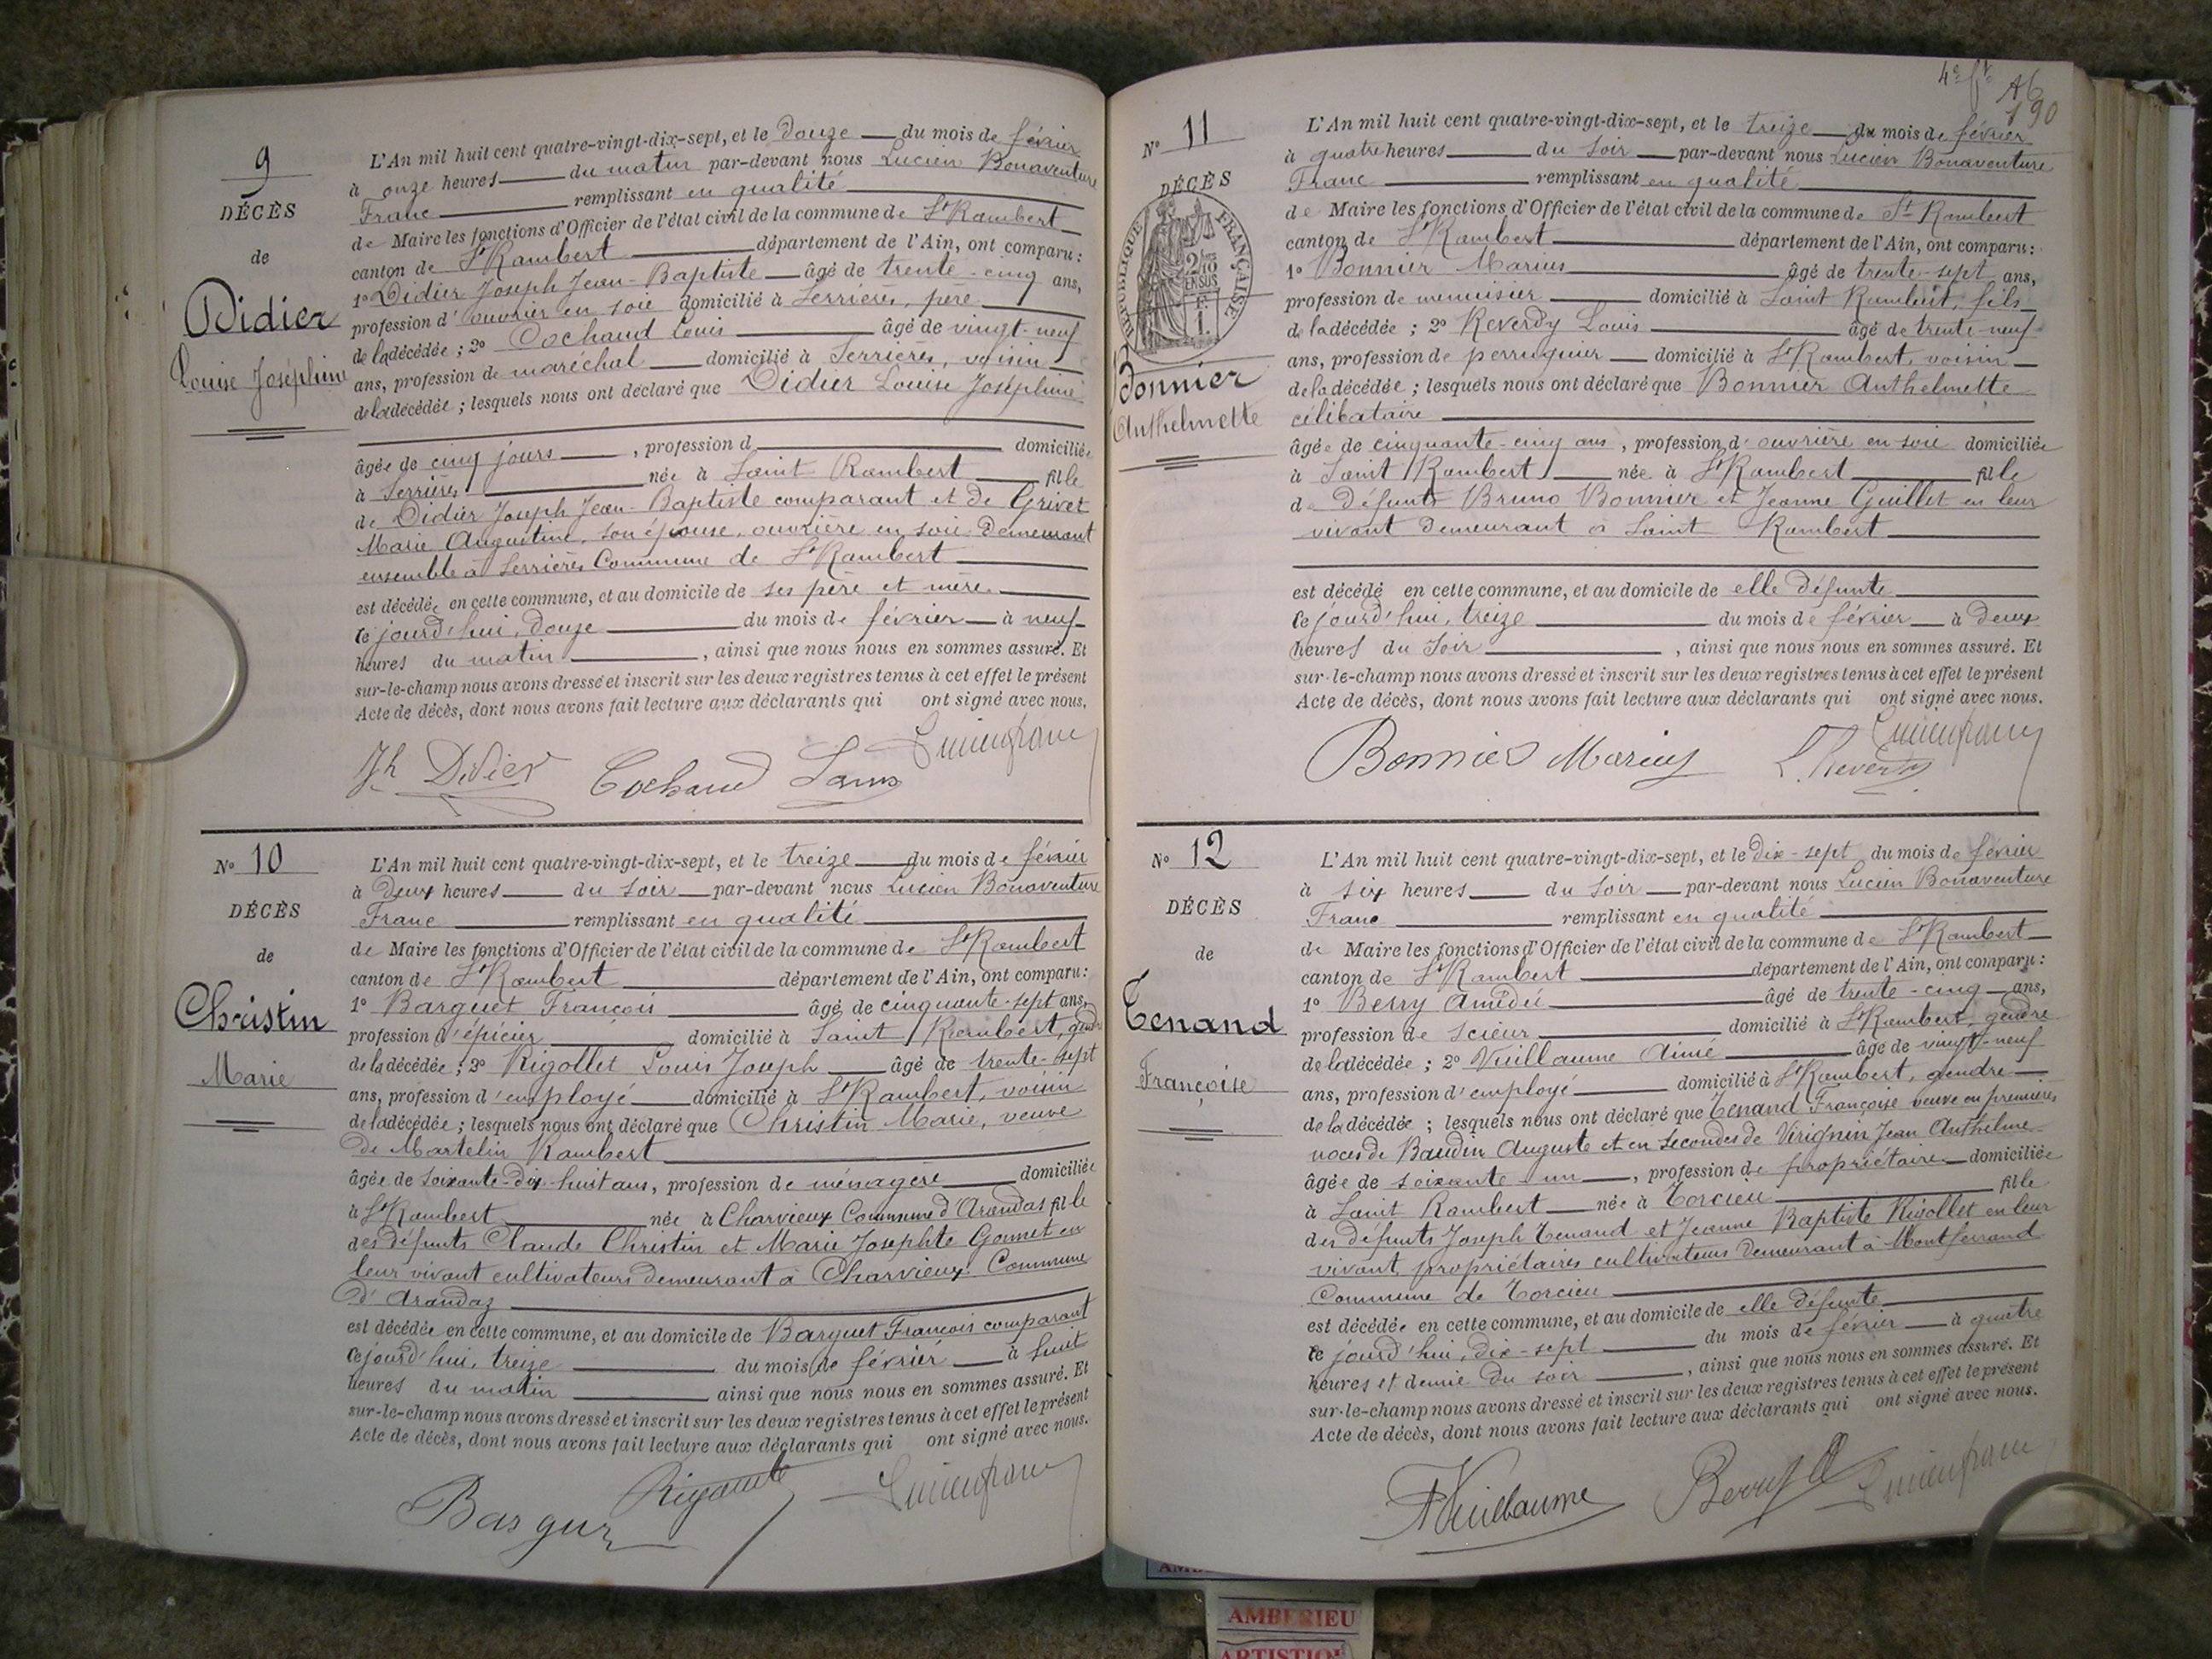 9
DÉCÈS
de
Didier
Louise Joséphine
L'An mil huit cent quatre-vingt-dix-sept, et le douze du mois de février
à onze heures du matin par-devant nous Lucien Bonaventure
Franc remplissant en qualité
de Maire les fonctions d'Officier de l'état civil de la commune de St Rambert
canton de St Rambert département de l'Ain, ont comparu:
1º Didier Joseph Jean-Baptiste âgé de trente-cinq ans,
profession d'ouvrier en soie domicilié à Serrières, père
de la décédée; 2º Cochaud Louis âgé de vingt-neuf
ans, profession de maréchal domicilié à Serrières, voisin
de la décédée; lesquels nous ont déclaré que Didier Louise Joséphine
âgée de cinq jours, profession d domiciliée
à Serrières née à Saint Rambert fille
de Didier Joseph Jean-Baptiste comparant et de Grivet
Marie Augustine, son épouse, ouvrière en soie demeurant
ensemble à Serrières Commune de St Rambert
est décédée en cette commune, et au domicile de ses père et mère
ce jourd'hui, douze du mois de février à neuf
heures du matin, ainsi que nous nous en sommes assuré. Et
sur-le-champ nous avons dressé et inscrit sur les deux registres tenus à cet effet le présent
Acte de décès, dont nous avons fait lecture aux déclarants qui ont signé avec nous.
Jh Didier Cochaud Louis Lucien franc
Nº 10
DÉCÈS
de
Christin
Marie
L'An mil huit cent quatre-vingt-dix-sept, et le treize du mois de février
à deux heures du soir par-devant nous Lucien Bonaventure
Franc remplissant en qualité
de Maire les fonctions d'Officier de l'état civil de la commune de St Rambert
canton de St Rambert département de l'Ain, ont comparu:
1º Barquet François âgé de cinquante-sept ans,
profession d'épicier domicilié à Saint Rambert,
de la décédée; 2º Rigollet Louis Joseph âgé de trente-sept
ans, profession d'employé domicilié à St Rambert, voisin
de la décédée; lesquels nous ont déclaré que Christin Marie, veuve
de Martelin Rambert
âgée de soixante-dix-huit ans, profession de ménagère domiciliée
à St Rambert née à Charvieux Commune d'Arandas fille
des défunts Claude Christin et Marie Josephte Gonnet en
leur vivant cultivateurs demeurant à Charvieux Commune
d'Arandaz
est décédée en cette commune, et au domicile de Barquet François comparant
ce jourd'hui, treize du mois de février à huit
heures du matin ainsi que nous nous en sommes assuré. Et
sur-le-champ nous avons dressé et inscrit sur les deux registres tenus à cet effet le présent
Acte de décès, dont nous avons fait lecture aux déclarants qui ont signé avec nous.
Lucien franc
190
Nº 11
DÉCÈS
RÉPUBLIQUE FRANÇAISE
2/10 EN SUS
1 F.
Bonnier
Anthelmette
L'An mil huit cent quatre-vingt-dix-sept, et le treize du mois de février
à quatre heures du soir par-devant nous Lucien Bonaventure
Franc remplissant en qualité
de Maire les fonctions d'Officier de l'état civil de la commune de St Rambert
canton de St Rambert département de l'Ain, ont comparu:
1º Bonnier Marius âgé de trente-sept ans,
profession de menuisier domicilié à Saint Rambert, fils
de la décédée; 2º Reverdy Louis âgé de trente-neuf
ans, profession de perruquier domicilié à St Rambert, voisin
de la décédée; lesquels nous ont déclaré que Bonnier Anthelmette
célibataire
âgée de cinquante-cinq ans, profession d'ouvrière en soie domiciliée
à Saint Rambert née à St Rambert fille
de défunts Bruno Bonnier et Jeanne Guillet en leur
vivant demeurant à Saint Rambert
est décédé en cette commune, et au domicile de elle défunte
ce jourd'hui, treize du mois de février à deux
heures du soir, ainsi que nous nous en sommes assuré. Et
sur-le-champ nous avons dressé et inscrit sur les deux registres tenus à cet effet le présent
Acte de décès, dont nous avons fait lecture aux déclarants qui ont signé avec nous.
Bonnier Marius L. Reverdy Lucien franc
Nº 12
DÉCÈS
de
Tenand
Françoise
L'An mil huit cent quatre-vingt-dix-sept, et le dix-sept du mois de février
à six heures du soir par-devant nous Lucien Bonaventure
Franc remplissant en qualité
de Maire les fonctions d'Officier de l'état civil de la commune de St Rambert
canton de St Rambert département de l'Ain, ont comparu:
1º Berry Amédé âgé de trente-cinq ans,
profession de scieur domicilié à St Rambert, gendre
de la décédée; 2º Vuillaume Aimé âgé de vingt-neuf
ans, profession d'employé domicilié à St Rambert, gendre
de la décédée; lesquels nous ont déclaré que Tenand Françoise veuve en premières
noces de Baudin Auguste et en secondes de Virignin Jean Anthelme
âgée de soixante-un, profession de propriétaire domiciliée
à Saint Rambert née à Torcieu fille
des défunts Joseph Tenand et Jeanne Baptiste Rigollet en leur
vivant propriétaires cultivateurs demeurant à Montferrand
Commune de Torcieu
est décédée en cette commune, et au domicile de elle défunte
ce jourd'hui, dix-sept du mois de février à quatre
heures et demie du soir, ainsi que nous nous en sommes assuré. Et
sur-le-champ nous avons dressé et inscrit sur les deux registres tenus à cet effet le présent
Acte de décès, dont nous avons fait lecture aux déclarants qui ont signé avec nous.
AVuillaume Berry Lucien franc
AMBERIEU